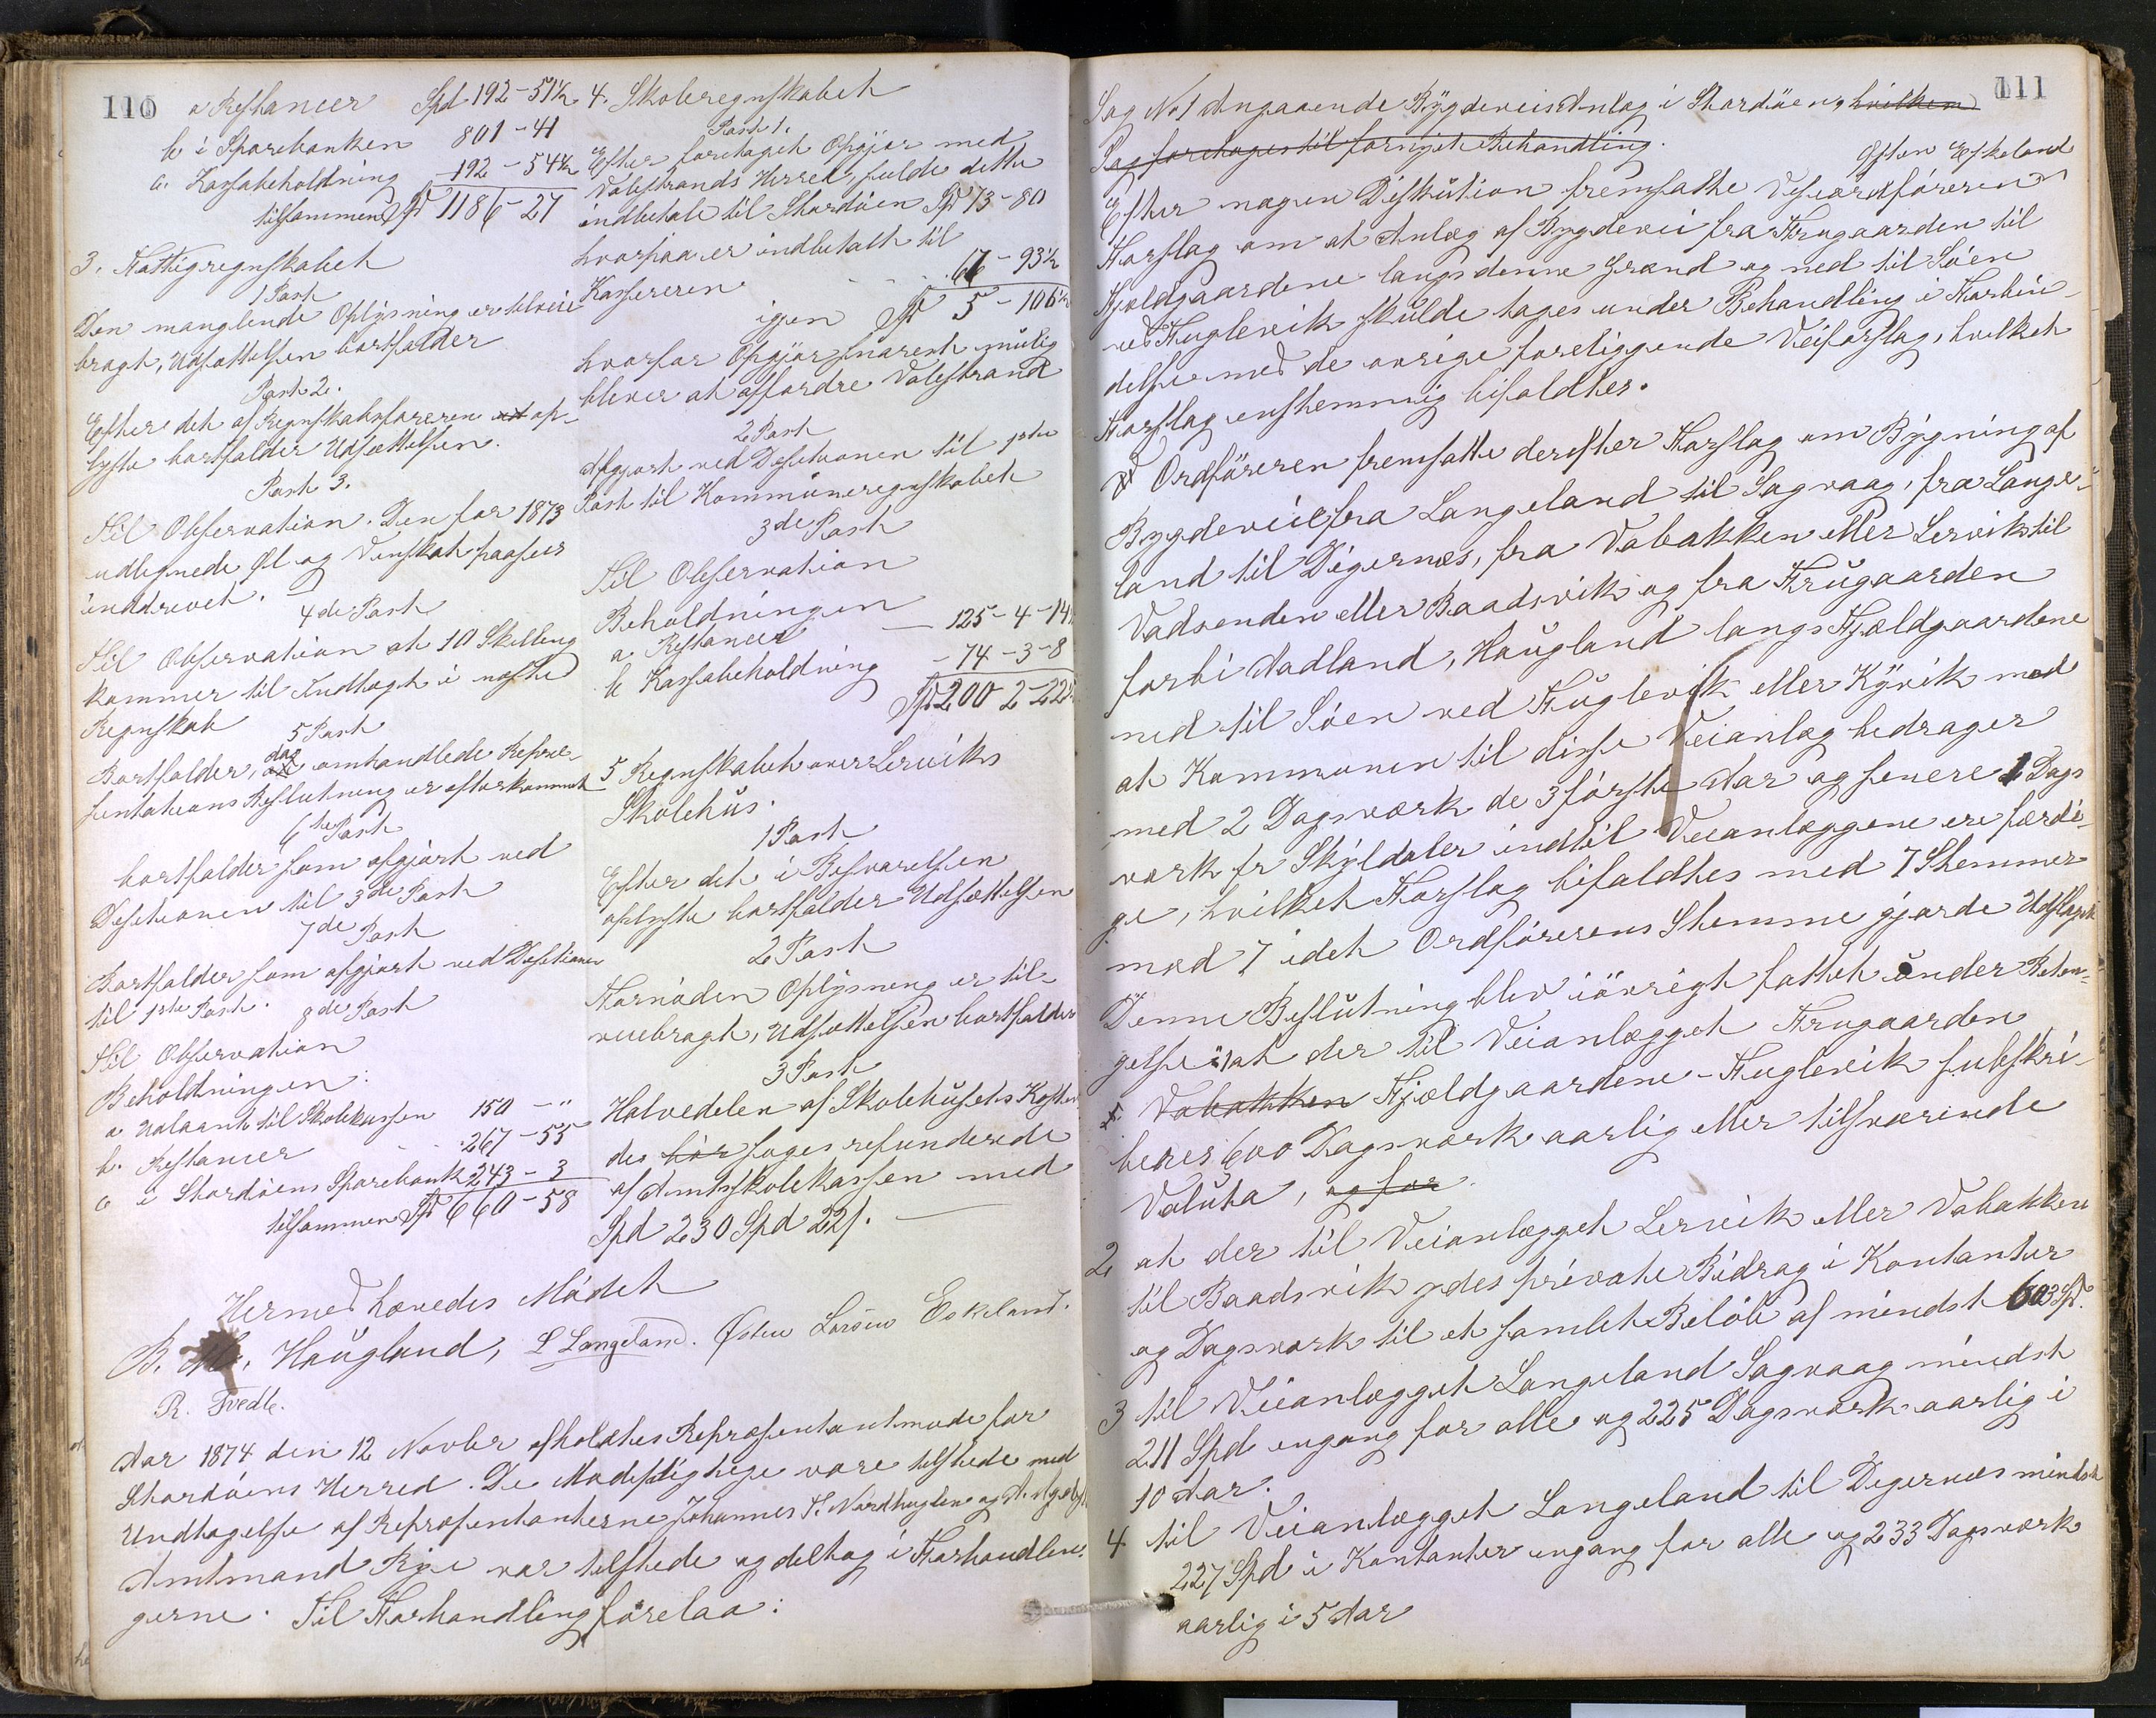 110
a Restancer Spd 192-51½
b i Sparebanken 801-41
c. Kassabeholdning 192-54½
tilsammen Spd 1186-27
3. Fattigregnskabet
1 Post
Den manglende Oplysning er tilveie
bragt, Udsættelsen bortfalder
Post 2.
Efter det af Regnskabsføreren op-
lyste bortfalder Udsættelsen.
Post 3.
Til Observation. Den for 1873
udlignede Øl og Vinskat paasees
inddrevet.
4de Post
Til Observation at 10 Skilling
kommer til Indtægt i næste
Regnskab
5 Post
Bortfalder, da omhandlede Repræ-
sentations Beslutning er efterkommet
6te Post
bortfalder som afgjort ved
Desitionen til 3de Post
7de Post
Bortfalder som afgjort ved Desitionen
til 1ste Post.
8de Post
Til Observation
Beholdningen:
a Udlaant til Skolekassen 150 - "
b. Restancer 267-55
c i Stordøens Sparebank 243-3
tilsammen Spd 660-58
4. Skoleregnskabet
Post 1.
Efter foretaget Opgjør med
Valestrands Herred, sulde dette
indbetale til Stordøen Spd 73-80
hvorpaa er indbetalt til
Kassereren 67-93½
igjen Spd 5-106½
hvorfor Opgjør snarest mulig
bliver at affordre Valestrand
2 Post
Afgjort ved Desitionen til 1ste
Post til Kommuneregnskabet
3de Post
Til Observation
Beholdningen
a Restancer 125-4-14
b Kassabeholdning 74-3-8
Spd 200 2-22
5 Regnskabet over Lerviks
Skolehus.
1 Post
Efter det i Besvarelsen
oplyste bortfalder Udsættelsen
2 Post
Fornøden Oplysning er til-
veiebragt, Udsættelsen bortfalder
3 Post
Halvedelen af Skolehusets Kosten
des bør søges refunderede
af Amtsskolekassen med
Spd 230 Spd 22 s.
Hermed hævedes Mødet
B. Haugland, L Langeland. Østen Larsen Eskeland.
R. Tvedte.
Aar 1874 den 12 Novbr afholdtes Repræsentantmøde for
Stordøens Herred. De Mødepligtige vare tilstede med
Undtagelse af Repræsentanterne Johannes T. Nordhuglen og
Amtmand Rye var tilstede og deltog i Forhandlin-
gerne. Til Forhandling forelaa:
111
Sag No 1 Angaaende Bygdeveis Anlæg i Stordøen, hvilken
Sag foretages til fornyet Behandling.
Østen Eskeland
Efter nogen Diskution fremsatte Viseordføreren
Forslag om at Anlæg af Bygdevei fra Frugaarden til
Fjældgaardene langs denne Grænd og ned til Søen
ved Fuglevik skulde tages under Behandling i Forbin-
delse med de øvrige foreliggende Veiforslag, hvilket
Forslag enstemmig bifaldtes.
Ordføreren fremsatte derefter Forslag om Bygning af
Bygdeveie fra Langeland til Sagvaag, fra Lange-
land til Digernæs, fra Vabakken eller Lervik til
Vadsenden eller Baadsvik og fra Frugaarden
forbi Aadland, Haugland langs Fjældgaardene
ned til Søen ved Fuglevik eller Kyvik mod
at Kommunen til disse Veianlæg bidrager
med 2 Dagsværk de 3 første Aar og senere 1 Dags
værk pr Skyldaler indtil Veianlæggene ere færdi-
ge, hvilket Forslag bifaldtes med 7 Stemmer
mod 7 idet Ordførerens Stemme gjorde Udslaget
Denne Beslutning blev iøvrigt fattet under Betin-
gelse 1 at der til Veianlægget Frugaarden
Vabakken Fjældgaardene-Fuglevik subskri-
beres 600 Dagsværk aarlig eller tilsvarende
Valuta, og for
2 at der til Veianlægget Lervik eller Vabakken
til Baadsvik ydes private Bidrag i Kontanter
og Dagsværk til et samlet Beløb af mindst 603 Spd.
3 til Veianlægget Langeland Sagvaag mindst
211 Spd engang for alle og 225 Dagsværk aarlig i
10 Aar.
4 til Veianlægget Langeland til Digernæs mindst
227 Spd i Kontanter engang for alle og 233 Dagsværk
aarlig i 5 Aar